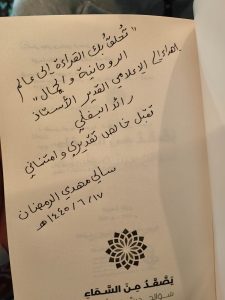 "تُحلّق بك القراءة إلى عالم
الروحانية والجمال"
إهداء إلى الإعلامي القدير الأستاذ
رائد
تقبّل خالص تقديري وامتناني
سالي مهدي الرمضان
١٤٤٥/٦/١٧هـ
بَصَّعَّدُ مِنَ السَّمَاءِ